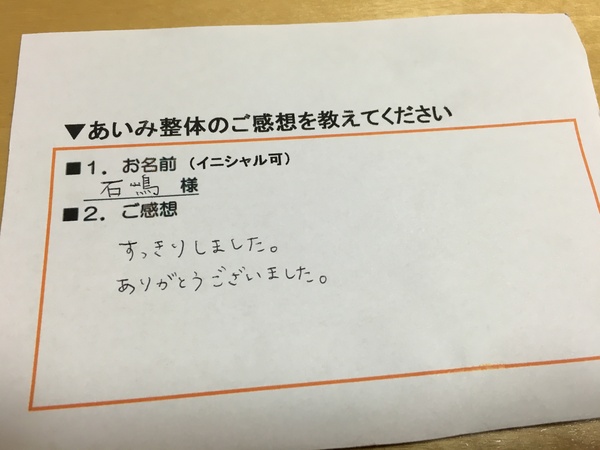 ▼あいみ整体のご感想を教えてください
■1．お名前（イニシャル可）
石嶋 様
■2．ご感想
すっきりしました。
ありがとうございました。